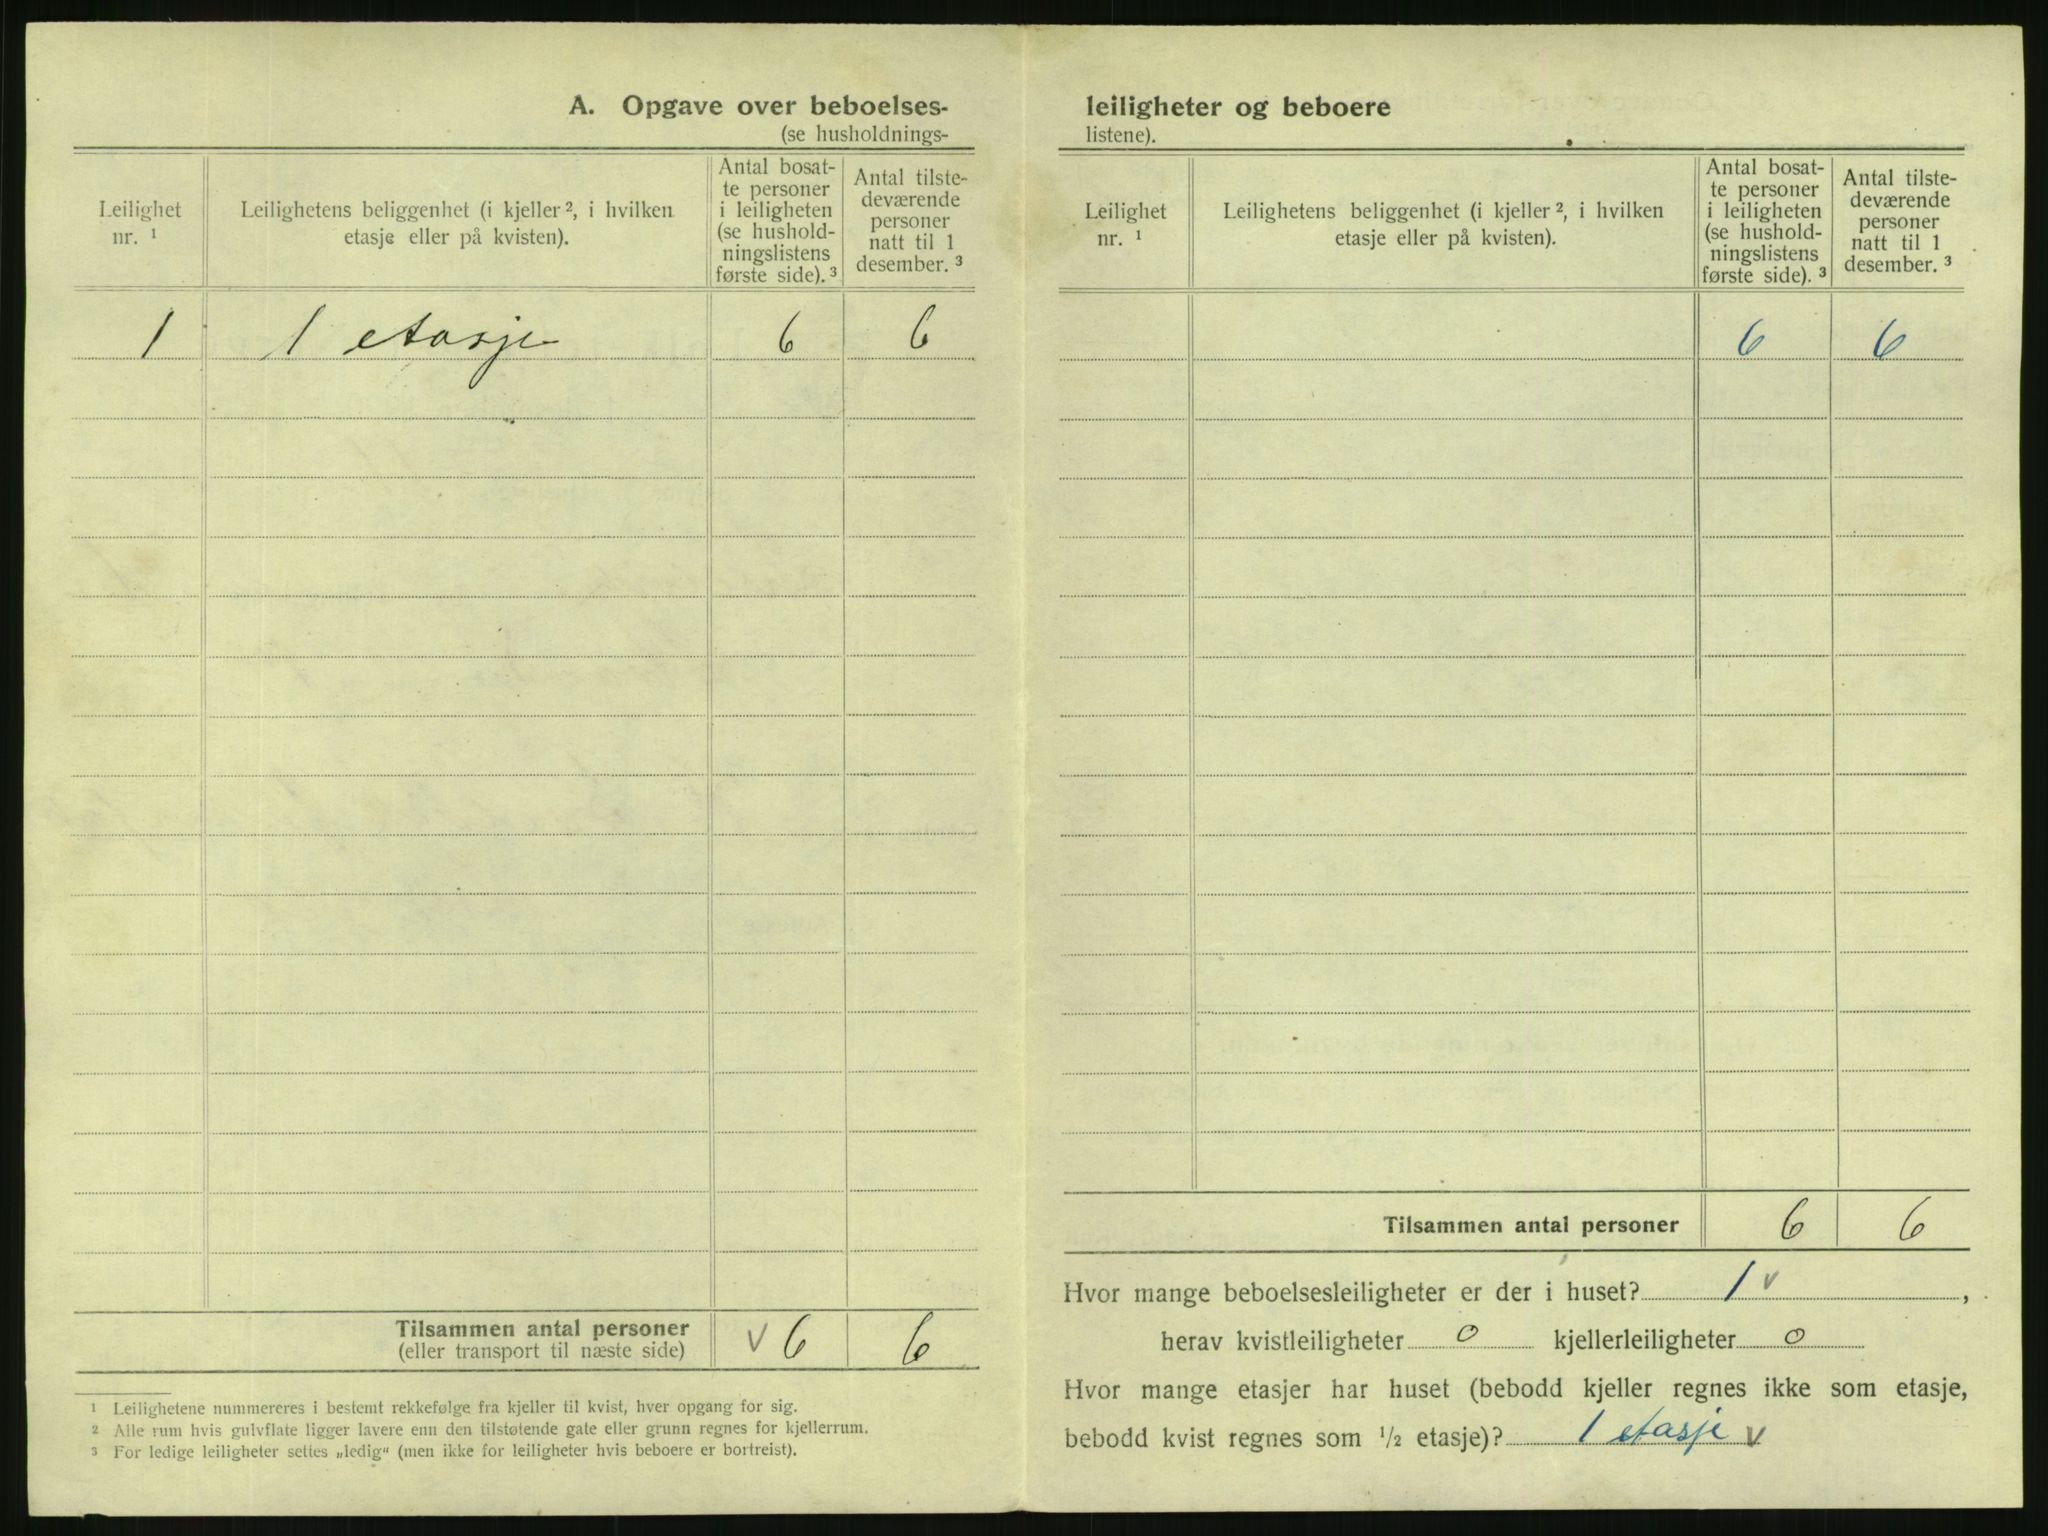 A. Opgave over beboelses-
(se husholdnings-
Leilighet nr. ¹
Leilighetens beliggenhet (i kjeller ², i hvilken
etasje eller på kvisten).
Antal bosat-
te personer
i leiligheten
(se hushold-
ningslistens
første side). ³
Antal tilste-
deværende
personer
natt til 1
desember. ³
1 1 etasje 6 6
Tilsammen antal personer V 6 6
(eller transport til næste side)
¹ Leilighetene nummereres i bestemt rekkefølge fra kjeller til kvist, hver opgang for sig.
² Alle rum hvis gulvflate ligger lavere enn den tilstøtende gate eller grunn regnes for kjellerrum.
³ For ledige leiligheter settes „ledig“ (men ikke for leiligheter hvis beboere er bortreist).
leiligheter og beboere
listene).
Leilighet
nr. ¹
Leilighetens beliggenhet (i kjeller ², i hvilken
etasje eller på kvisten).
Antal bosat-
te personer
i leiligheten
(se hushold-
ningslistens
første side). ³
Antal tilste-
deværende
personer
natt til 1
desember. ³
6 6
Tilsammen antal personer 6 6
Hvor mange beboelsesleiligheter er der i huset? 1 v ,
herav kvistleiligheter 0 kjellerleiligheter 0
Hvor mange etasjer har huset (bebodd kjeller regnes ikke som etasje,
bebodd kvist regnes som ½ etasje)? 1 etasje v